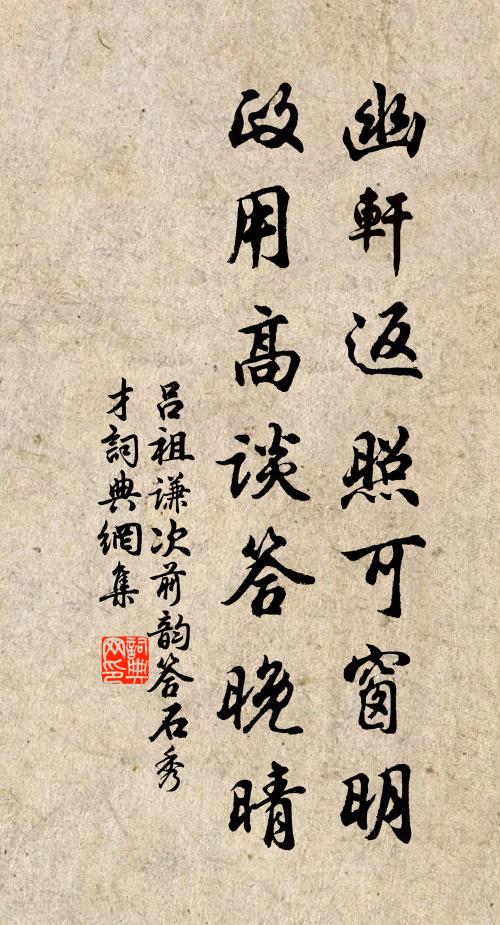 幽軒返照可窗明
政用高談答晚晴
吕祖謙次前韵答石秀
才詞典網集
詞典
网印